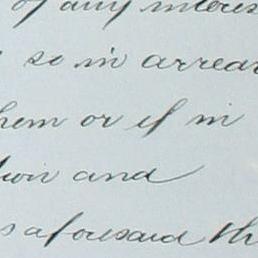 of any interes
so in arrear
hem or if in
tion and
s aforesaid th